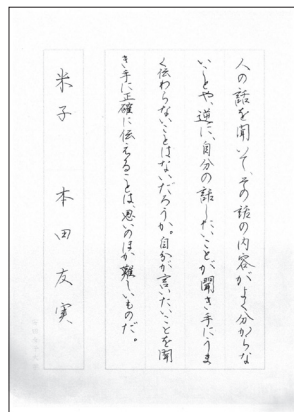 人の話を聞いて、その話の内容がよく分からな
いことや、逆に、自分の話したいことが聞き手にうま
く伝わらないことはないだろうか。自分が言いたいことを聞
き手に正確に伝えることは、思いのほか難しいものだ。
米子 本田友実